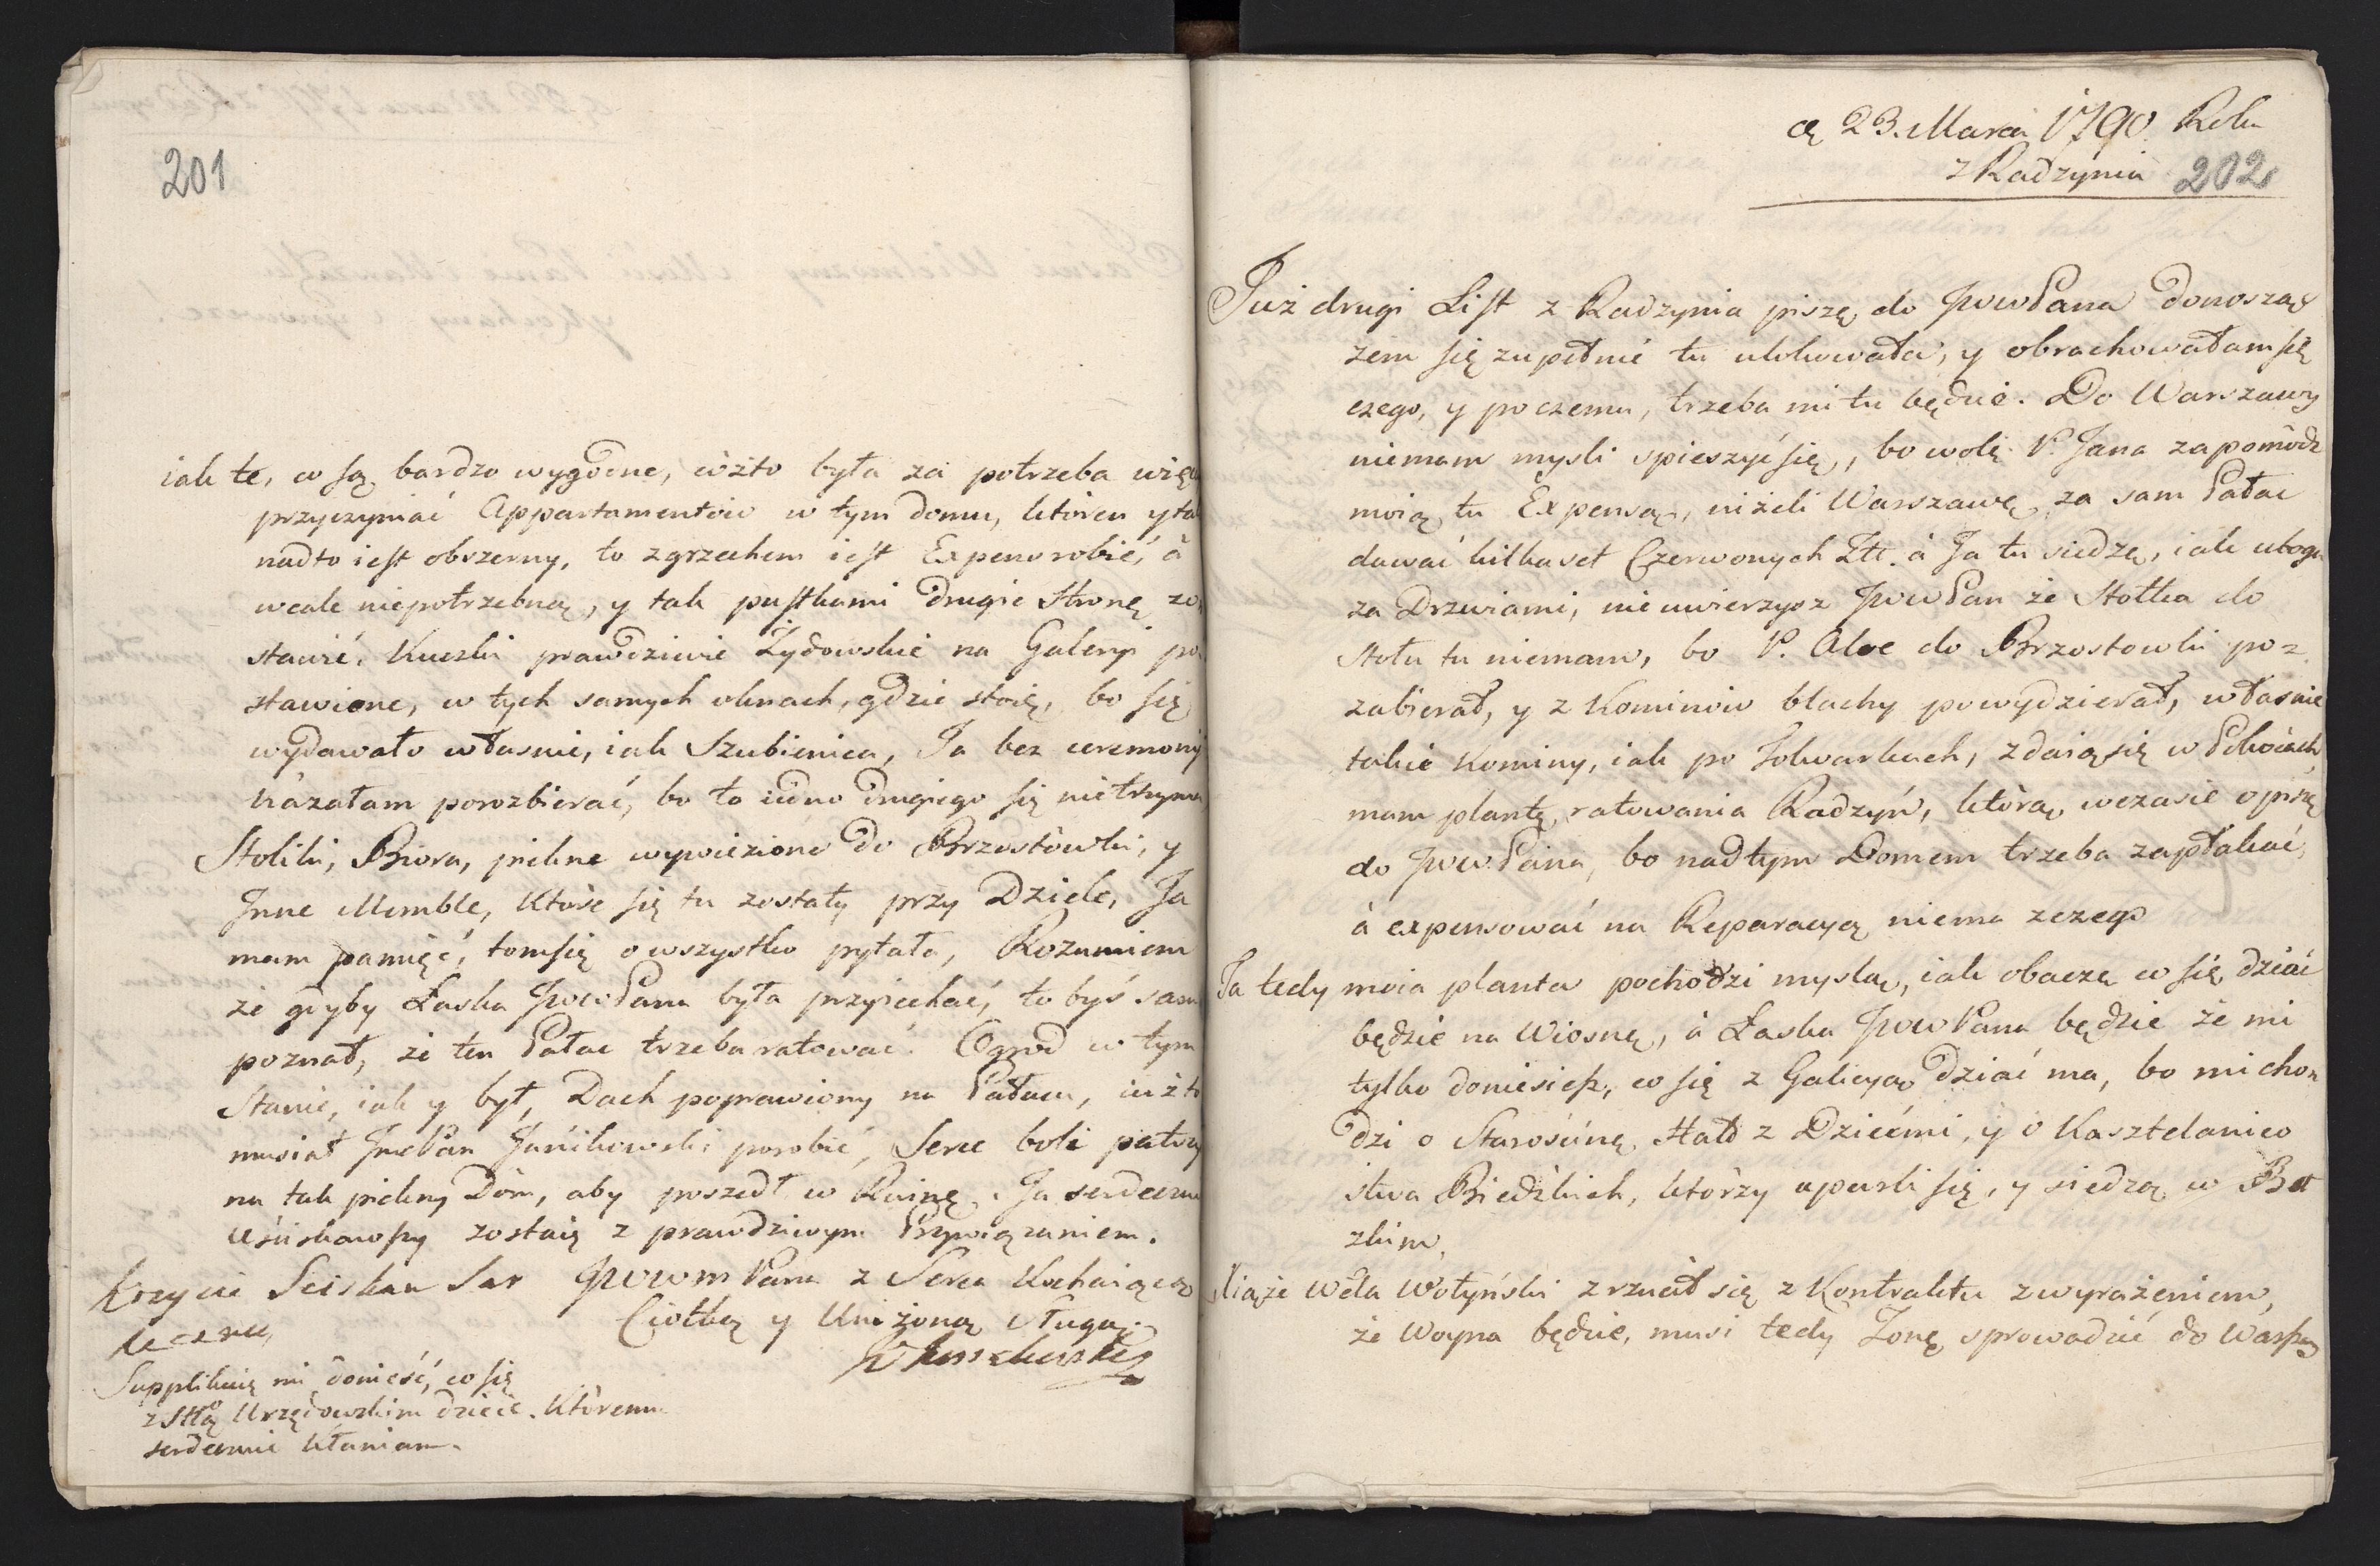 201
iak te, co są bardzo wygodne, cóżto była za potrzeba więcy
przyczyniać Appartamentow w tym domu, ktoren y ta
nadto iest obszerny, to zgrzechem iest Expens robić, à
wcale niepotrzebną, y tak pustkami drugie Stronę zo
stawić. Kuczki prawdziwie Żydowskie na Galeryi po
stawione, w tych samych oknach, gdzie stoię, bo się
wydawało własnie, iak Szubienica, Ja bez ceremonij
kázałam porozbierać, bo to iedno drugiego się nietrzyma
Stoliki, Biora, piekne wywiezione do Brzostówki, y
Jnne Memble, Które się tu zostały przy Dziele, Ja
mam pamięć, tomsię owszystko pytała, Rozumiem
że gdyby Łaska JwwPana była przyiechać, to byś sam
poznał, że ten Pałac trzeba ratować. Ogrod w tym
Stanie, iak y był, Dach poprawiony na Pałacu, iuż to
musiał JmcPan Janikowski porobić, Serce boli patrzą
na tak piekny Dóm, aby poszedł w Ruinę. Ja serdeczne
Uściskawszy zostaię z prawdziwym Przywiązaniem.
Krzycie Sciskam Ser JWWM Pana z Serca Kochaiącą
decznie, Ciotką y Uniżoną Sługą.
Supplikuię mi donieść, co się
z Sttą Urzędowskim dzieie. Ktoremu
serdecznie kłaniam.
ą 23. Marca 1790. Roku
z Radzynia 202
Już drugi List z Radzynia piszę do JwwPana donosząc
żem się zupełnie tu ulokowała, y obrachowałam się
czego, y poczemu, trzeba mi tu będzie. Do Warszawy
niemam mysli spieszyć się, bo wolę P. Jana zapomodz
moią tu Expensą, niżeli Warszawę za sam Pałac
dawać kilkaset Czerwonych Złł. à Ja tu siedzę, iak uboga
za Drzwiami, nieuwierzysz JwwPan że Stołka do
Stołu tu niemam, bo P. Aloe do Brzostowki po=
zabierał, y z Kominow blachy powydzierał, własnie
takie Kominy, iak po Folwarkach, zdaią się w Pokoiach,
mam plantę ratowania Radzyń, którą wczasie opiszę
do Jww.Pana, bo nad tym Domem trzeba zapłakać,
à expensować na Reparacyą niema zczego
Ta tedy moia planta pochodzi myslą, iak obaczę co się dziać
będzie na Wiosnę, à Łaska JwwPana będzie że mi
tylko doniesiesz, co się z Galicyą dziać ma, bo mi cho=
dzi o Starościnę Hałd z Dziećmi, y o Kasztelanico
stwa Biedzkich, którzy uparli się, y siedzą w Bał
zkim,
Xiąże Wda Wołyński zrzucił się z Kontraktu zwyrażeniem,
że Woyna będzie, musi tedy Żonę sprowadzić do Warszy